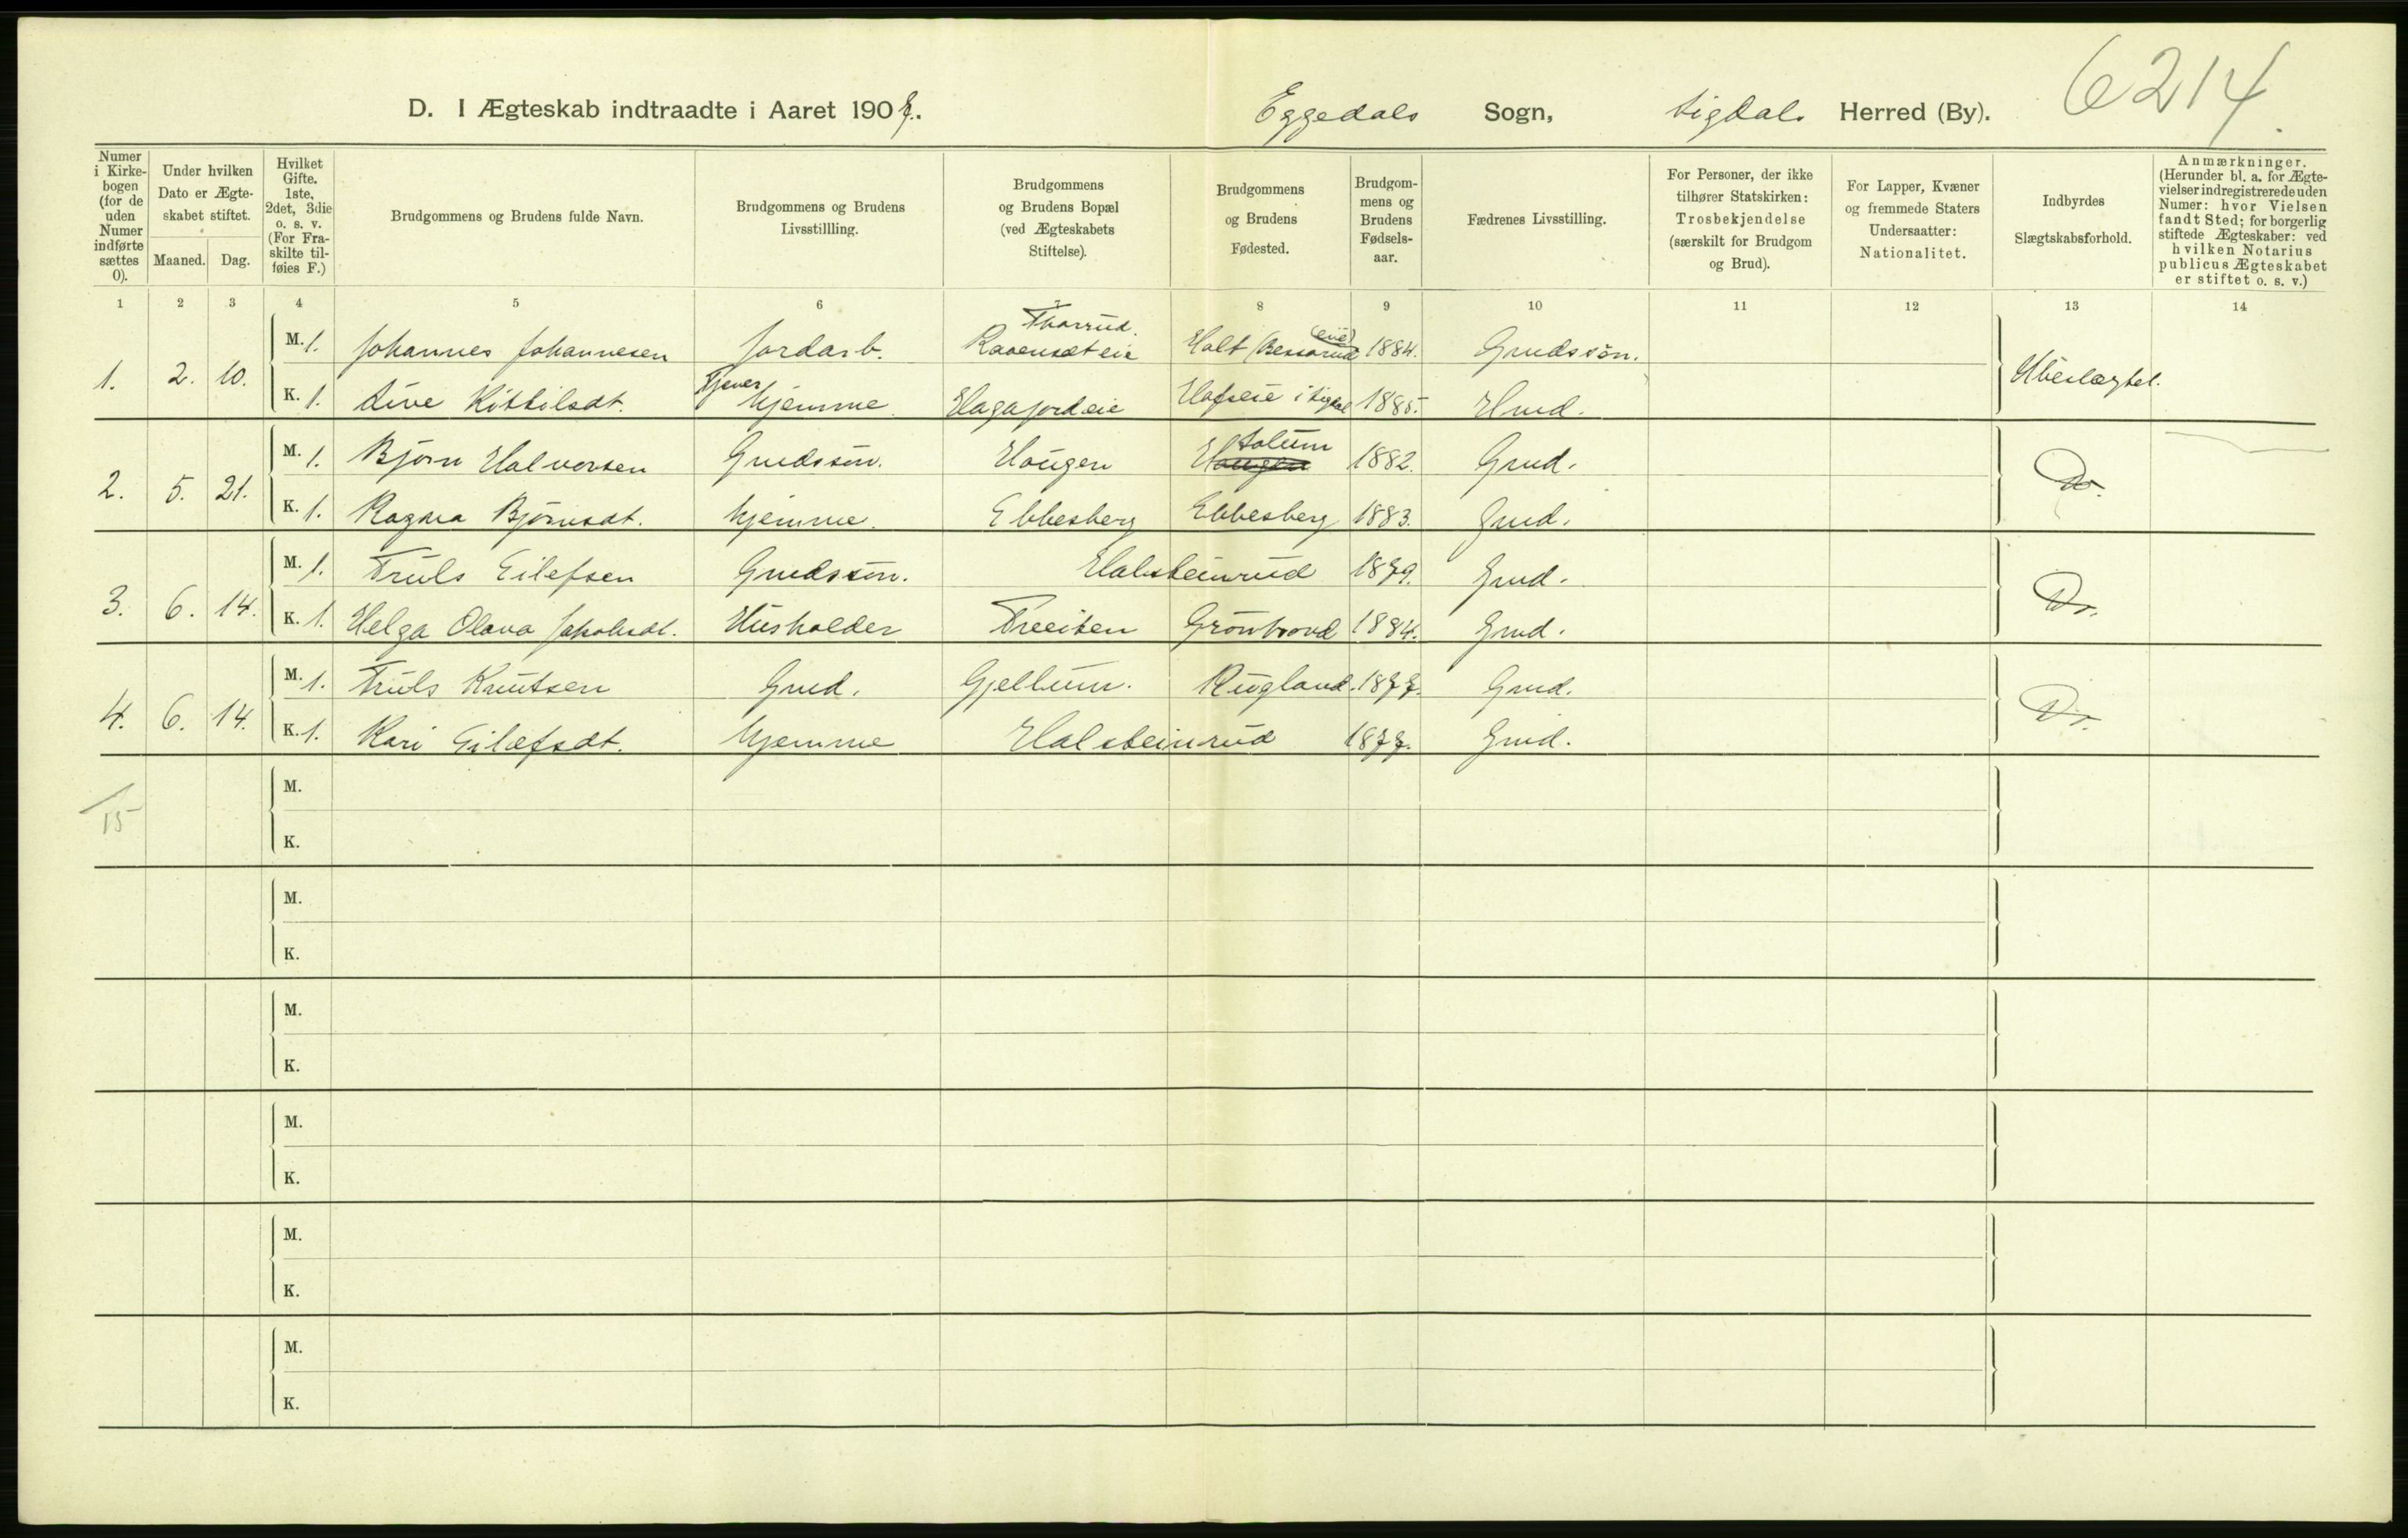 6214.
D. I Ægteskab indtraadte i Aaret 1907. Eggedals Sogn, Sigdals Herred (By).
Numer i Kirke-bogen (for de uden Numer indførte sættes 0).
Under hvilken Dato er Ægte-skabet stiftet.
Maaned. Dag.
Hvilket Gifte. 1ste, 2det, 3die o. s. v. (For Fra-skilte til-føies F.)
Brudgommens og Brudens fulde Navn.
Brudgommens og Brudens Livsstillling.
Brudgommens og Brudens Bopæl (ved Ægteskabets Stiftelse).
Brudgommens og Brudens Fødested.
Brudgom-mens og Brudens Fødsels-aar.
Fædrenes Livsstilling.
For Personer, der ikke tilhører Statskirken: Trosbekjendelse (særskilt for Brudgom og Brud).
For Lapper, Kvæner og fremmede Staters Undersaatter: Nationalitet.
Indbyrdes Slægtskabsforhold.
Anmærkninger. (Herunder bl. a. for Ægte-vielser indregistrerede uden Numer: hvor Vielsen fandt Sted; for borgerlig stiftede Ægteskaber: ved hvilken Notarius publicus Ægteskabet er stiftet o. s. v.)
1 2 3 4 5 6 7 8 9 10 11 12 13 14
1. 2. 10.
M. 1. Johannes Johannesen Jordarb. Thorrud. Ravensæteie Holt (Bessarud eie) 1884. Grudssøn.
K. 1. Sive Kittilsdt. Tjener hjemme. Hagafjordeie Hofseie i Sigdal 1885. Hmd.
Ubeslægtet.
2. 5. 21.
M. 1. Bjørn Halvorsen Grudssøn. Haugen Solum 1882. Grud.
K. 1. Ragna Bjørnsdt. hjemme. Ebbesberg Ebbesberg 1883. Grud.
Do.
3. 6. 14.
M. 1. Truls Eilefsen Grudssøn. Halsteinrud 1879. Grud.
K. 1. Helga Olava Jakobsdt. Husholder Treeiten Grønhovd 1884. Grud.
Do.
4. 6. 14.
M. 1. Truls Knutsen Grud. Gjellum. Rugland. 1877. Grud.
K. 1. Kari Eilefsdt. hjemme Halsteinrud 1877. Grud.
Do.
15
M.
K.
M.
K.
M.
K.
M.
K.
M.
K.
M.
K.